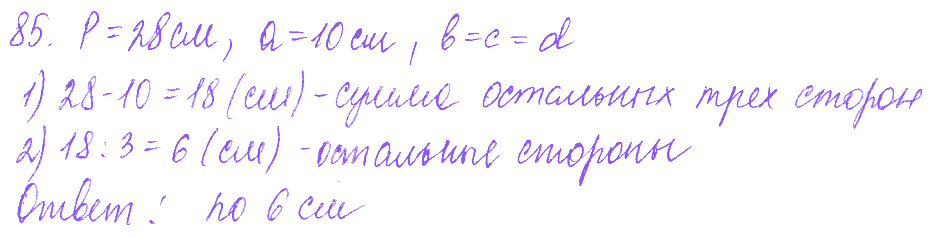 85. P = 28 см, a = 10 см, в = с = d
1) 28 - 10 = 18 (см) - сумма остальных трех сторон
2) 18 : 3 = 6 (см) - остальные стороны
Ответ: по 6 см